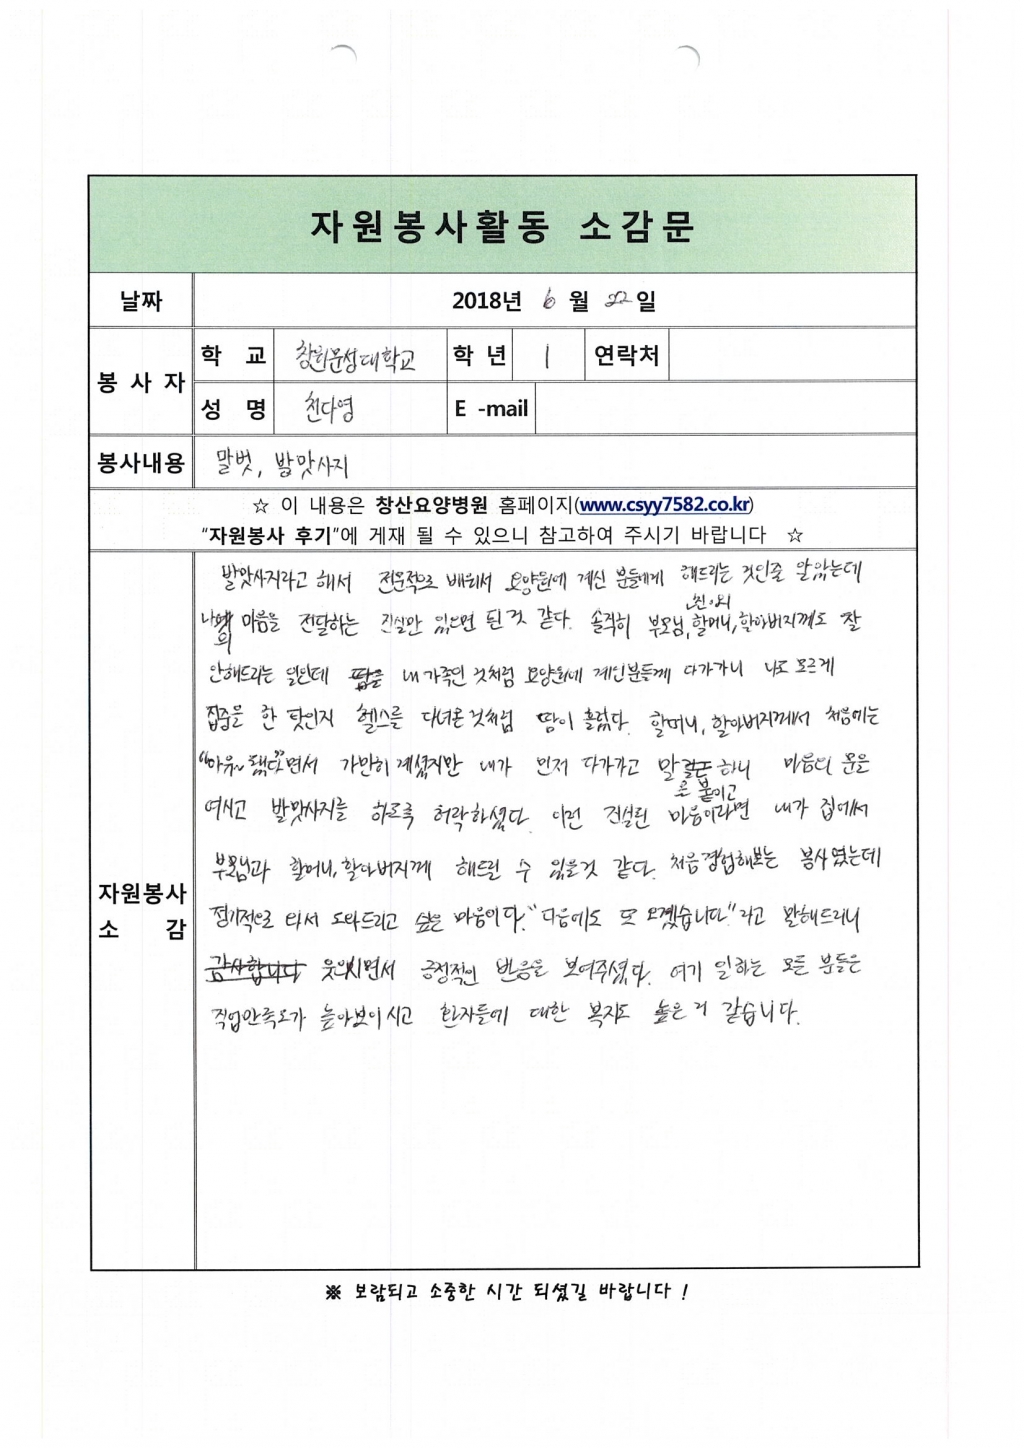 자원봉사활동 소감문
날짜 2018년 6월 22일
봉사자 학교 창원문성대학교 학년 1 연락처
성명 천다영 E -mail
봉사내용 말벗, 발맛사지
☆ 이 내용은 창산요양병원 홈페이지(www.csyy7582.co.kr)
“자원봉사 후기”에 게재 될 수 있으니 참고하여 주시기 바랍니다 ☆
자원봉사
소 감
발맛사지라고 해서 전문적으로 배워서 요양원에 계신 분들에게 해드리는 것인줄 알았는데
나의 마음을 전달하는 진실만 있으면 된 것 같다. 솔직히 부모님, 친・외 할머니, 할아버지께도 잘
안해드리는 일인데 내 가족인 것처럼 요양원에 계신분들께 다가가니 나도 모르게
집중을 한 탓인지 헬스를 다녀온 것처럼 땀이 흘렀다. 할머니, 할아버지께서 처음에는
“아유~ 됐다”면서 가만히 계셨지만 내가 먼저 다가가고 말을 붙이고 하니 마음의 문을
여시고 발맛사지를 하도록 허락하셨다. 이런 진실된 마음이라면 내가 집에서
부모님과 할머니, 할아버지께 해드릴 수 있을것 같다. 처음경험해보는 봉사였는데
정기적으로 와서 도와드리고 싶은 마음이다. “다음에도 또 오겠습니다.”라고 말해드리니
감사합니다 웃으시면서 긍정적인 반응을 보여주셨다. 여기 일하는 모든 분들은
직업만족도가 높아보이시고 환자들에 대한 복지도 높은 거 같습니다.
※ 보람되고 소중한 시간 되셨길 바랍니다 !